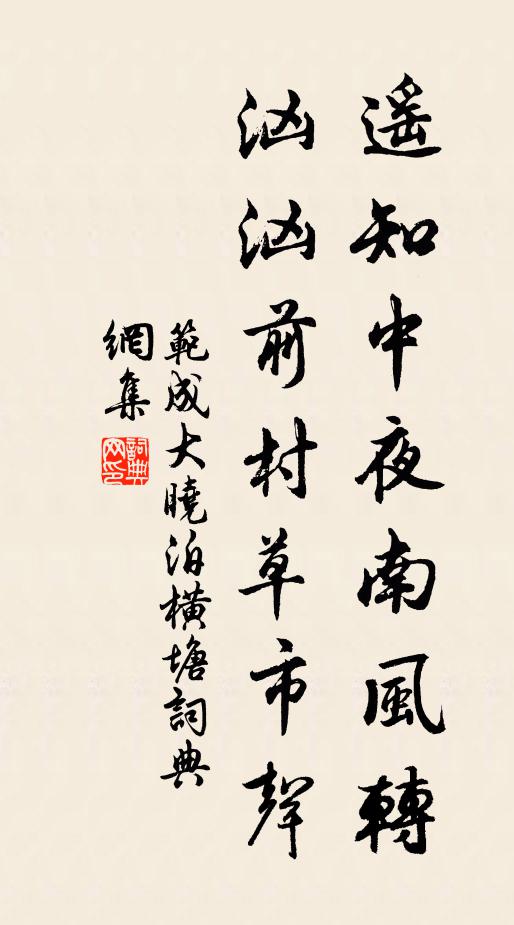 遥知中夜南風轉
汹汹前村草市聲
範成大曉泊橫塘詞典
網集
詞典网印